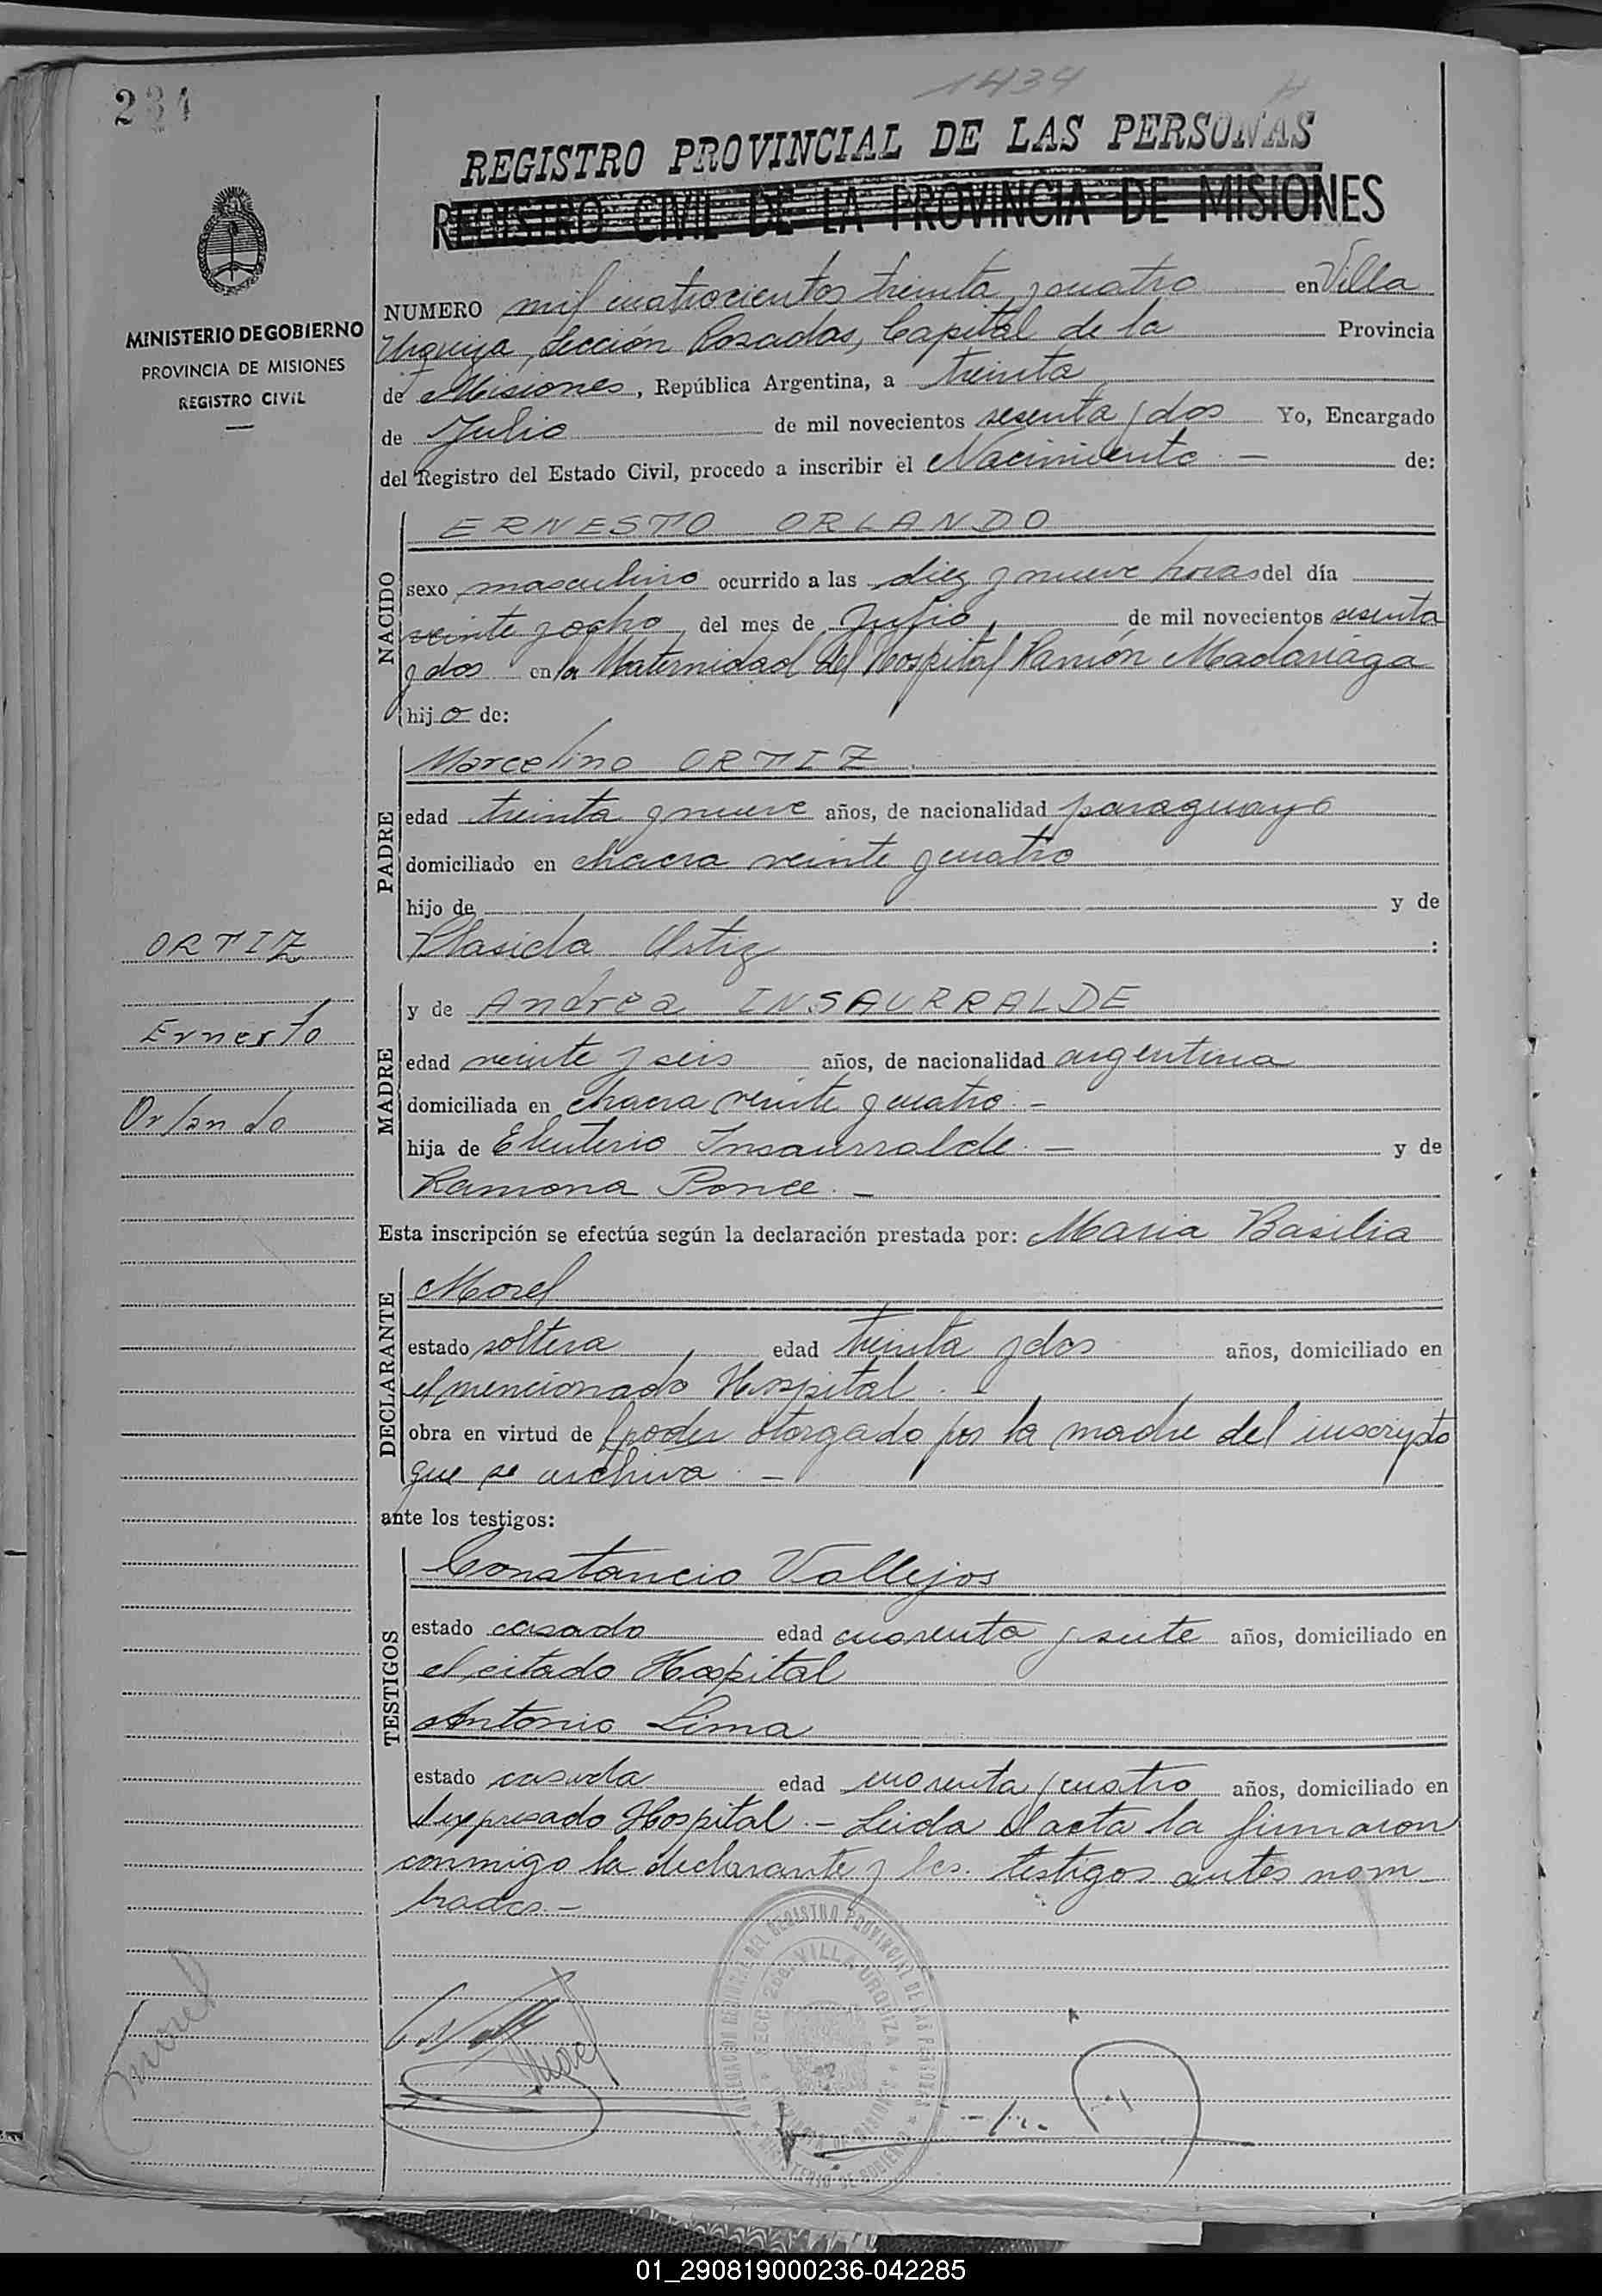 234
1434
REGISTRO PROVINCIAL DE LAS PERSONAS
REGISTRO CIVIL DE LA PROVINCIA DE MISIONES
MINISTERIO DE GOBIERNO
PROVINCIA DE MISIONES
REGISTRO CIVIL
NUMERO mil cuatrocientos treinta y cuatro en Villa
Urquiza, Sección Posadas, Capital de la Provincia
de Misiones, República Argentina, a treinta
de Julio de mil novecientos sesenta y dos Yo, Encargado
del Registro del Estado Civil, procedo a inscribir el Nacimiento.- de:
NACIDO
ERNESTO ORLANDO
sexo masculino ocurrido a las diez y nueve horas del día
veinte y ocho del mes de Julio, de mil novecientos sesenta
y dos en la Maternidad del Hospital Ramón Madariaga
hijo de:
PADRE
Marcelino ORTIZ
edad treinta y nueve años, de nacionalidad paraguayo
domiciliado en chacra veinte y cuatro
hijo de y de
Plasida Ortiz :
ORTIZ
Ernesto
Orlando
MADRE
y de Andrea INSAURRALDE
edad veinte y seis años, de nacionalidad argentina
domiciliada en chacra veinte y cuatro.-
hija de Eleuterio Insaurralde.- y de
Ramona Ponce.-
Esta inscripción se efectúa según la declaración prestada por: Maria Basilia
DECLARANTE
Morel
estado soltera edad treinta y dos años, domiciliado en
el mencionado Hospital.-
obra en virtud de poder otorgado por la madre del inscripto
que se archiva.-
ante los testigos:
TESTIGOS
Constancio Vallejos
estado casado edad cuarenta y siete años, domiciliado en
el citado Hospital
Antonio Lima
estado casado edad cuarenta y cuatro años, domiciliado en
el expresado Hospital.- Leida el acta la firmaron
conmigo la declarante y los testigos antes nom
brados.-
Morel
Morel
VILLA URQUIZA
01_290819000236-042285